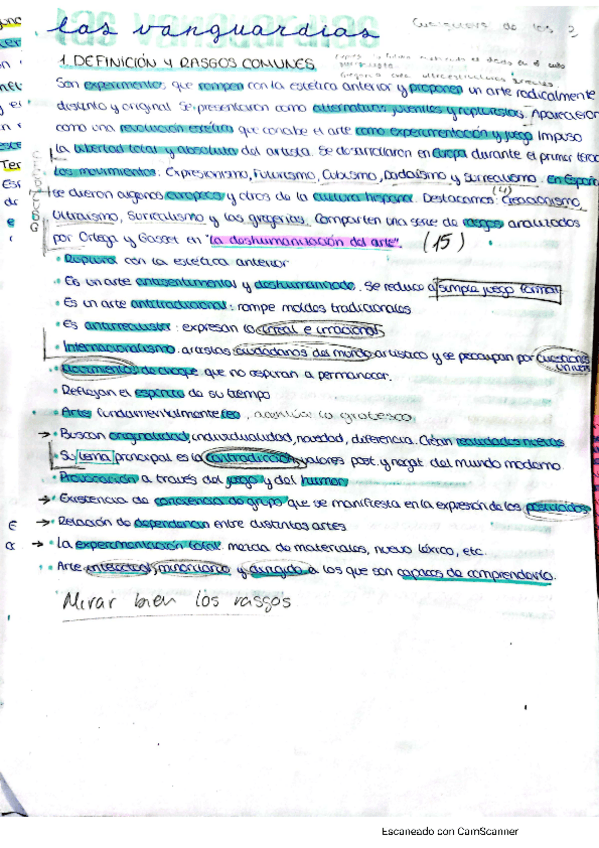 las vanguardias
Cualquiera de los 2
1. DEFINICIÓN Y RASGOS COMUNES
Son experimentos que rompen con la estética anterior y proponen un arte radicalmente
distinto y original. Se presentaron como alternativas juveniles y rupturistas. Aparecieron
como una revolución estética que concibe el arte como experimentación y juego. Impuso
la libertad total y absoluta del artista. Se desarrollaron en Europa durante el primer tercio
los movimientos: Expresionismo, Futurismo, Cubismo, Dadaísmo y Surrealismo. En España
se dieron algunos europeos y otros de la cultura hispana. Destacamos: Creacionismo, (4)
Ultraísmo, Surrealismo y las greguerías. Comparten una serie de rasgos analizados
por Ortega y Gasset en "la deshumanización del arte". (15)
• Ruptura con la estética anterior
• Es un arte antisentimental y deshumanizado. Se reduce a simple juego formal
• Es un arte antitradicional: rompe moldes tradicionales
• Es antirrealista: expresan lo irreal e irracional
• Internacionalismo: artistas ciudadanos del mundo artístico y se preocupan por cuestiones univers
• Documentos de choque que no aspiran a permanecer.
• Reflejan el espíritu de su tiempo
• Arte fundamentalmente feo, lo grotesco
→ • Buscan originalidad, individualidad, novedad, diferencia. Crean realidades nuevas
• Su tema principal es la contradicción, valores posit. y negat. del mundo moderno.
• Provocación a través del juego y del humor
→ • Existencia de conciencia de grupo que se manifiesta en la expresión de los postulados
→ • Relación de dependencia entre distintas artes
→ • La experimentación total: mezcla de materiales, nuevo léxico, etc.
• Arte intelectual, minoritario y dirigido a los que son capaces de comprenderlo.
Mirar bien los rasgos
Escaneado con CamScanner